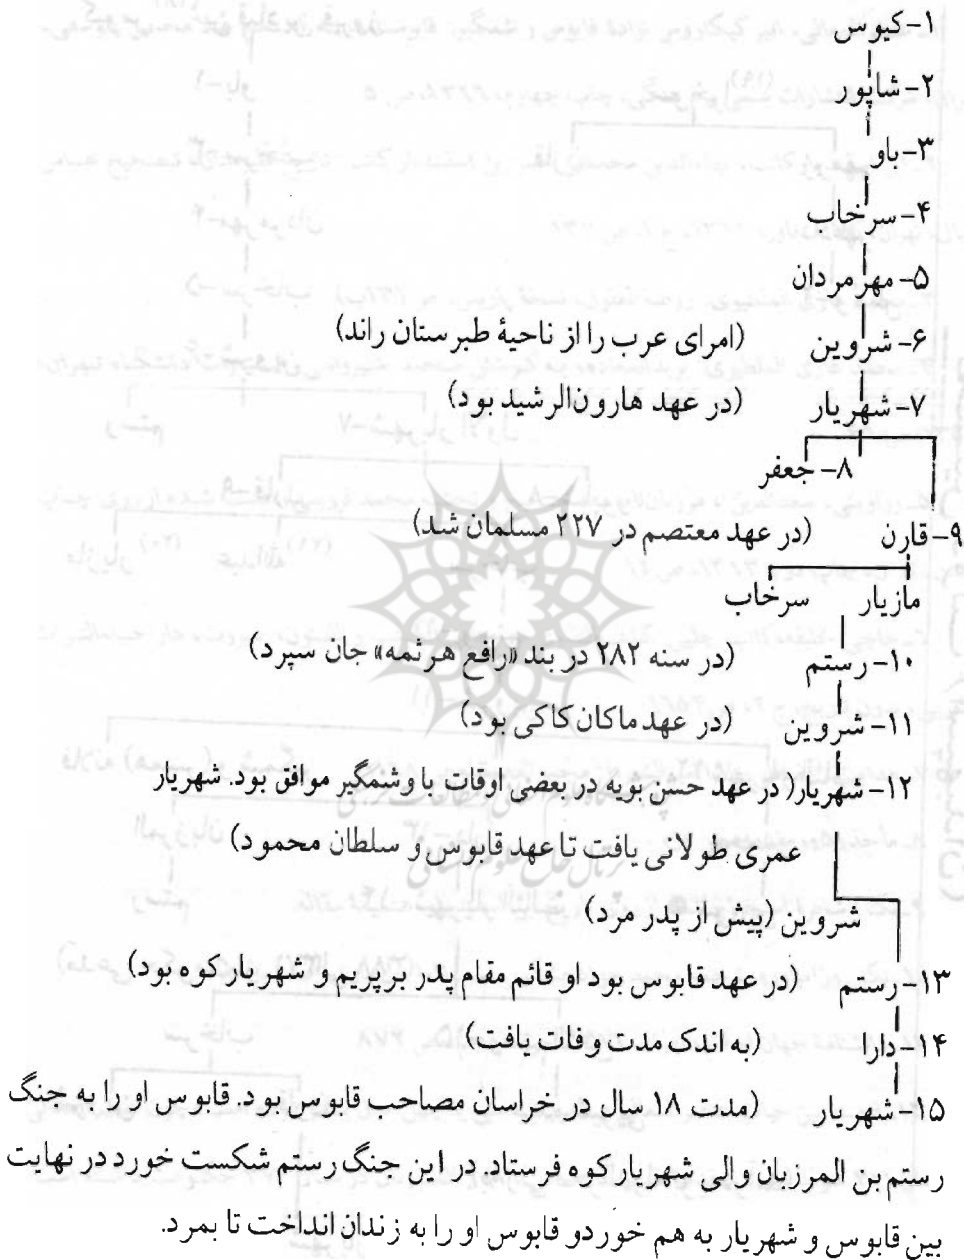 ۱-کیوس
۲-شاپور
۳-باو
۴-سرخاب
۵- مهرمردان
۶- شروین (امرای عرب را از ناحیهٔ طبرستان راند)
۷- شهریار (در عهد هارون‌الرشید بود)
۸- جعفر
۹-قارن (در عهد معتصم در ۲۲۷ مسلمان شد)
مازیار سرخاب
۱۰-رستم (در سنه ۲۸۲ در بند «رافع هرثمه» جان سپرد)
۱۱- شروین (در عهد ماکان کاکی بود)
۱۲- شهریار( در عهد حسن بویه در بعضی اوقات با وشمگیر موافق بود. شهریار
عمری طولانی یافت تا عهد قابوس و سلطان محمود)
شروین (پیش از پدر مرد)
۱۳-رستم (در عهد قابوس بود او قائم مقام پدر بر پریم و شهریار کوه بود)
۱۴-دارا (به اندک مدت وفات یافت)
۱۵-شهریار (مدت ۱۸ سال در خراسان مصاحب قابوس بود. قابوس او را به جنگ
رستم بن المرزبان والی شهریار کوه فرستاد. در این جنگ رستم شکست خورد در نهایت
بین قابوس و شهریار به هم خورد و قابوس او را به زندان انداخت تا بمرد.